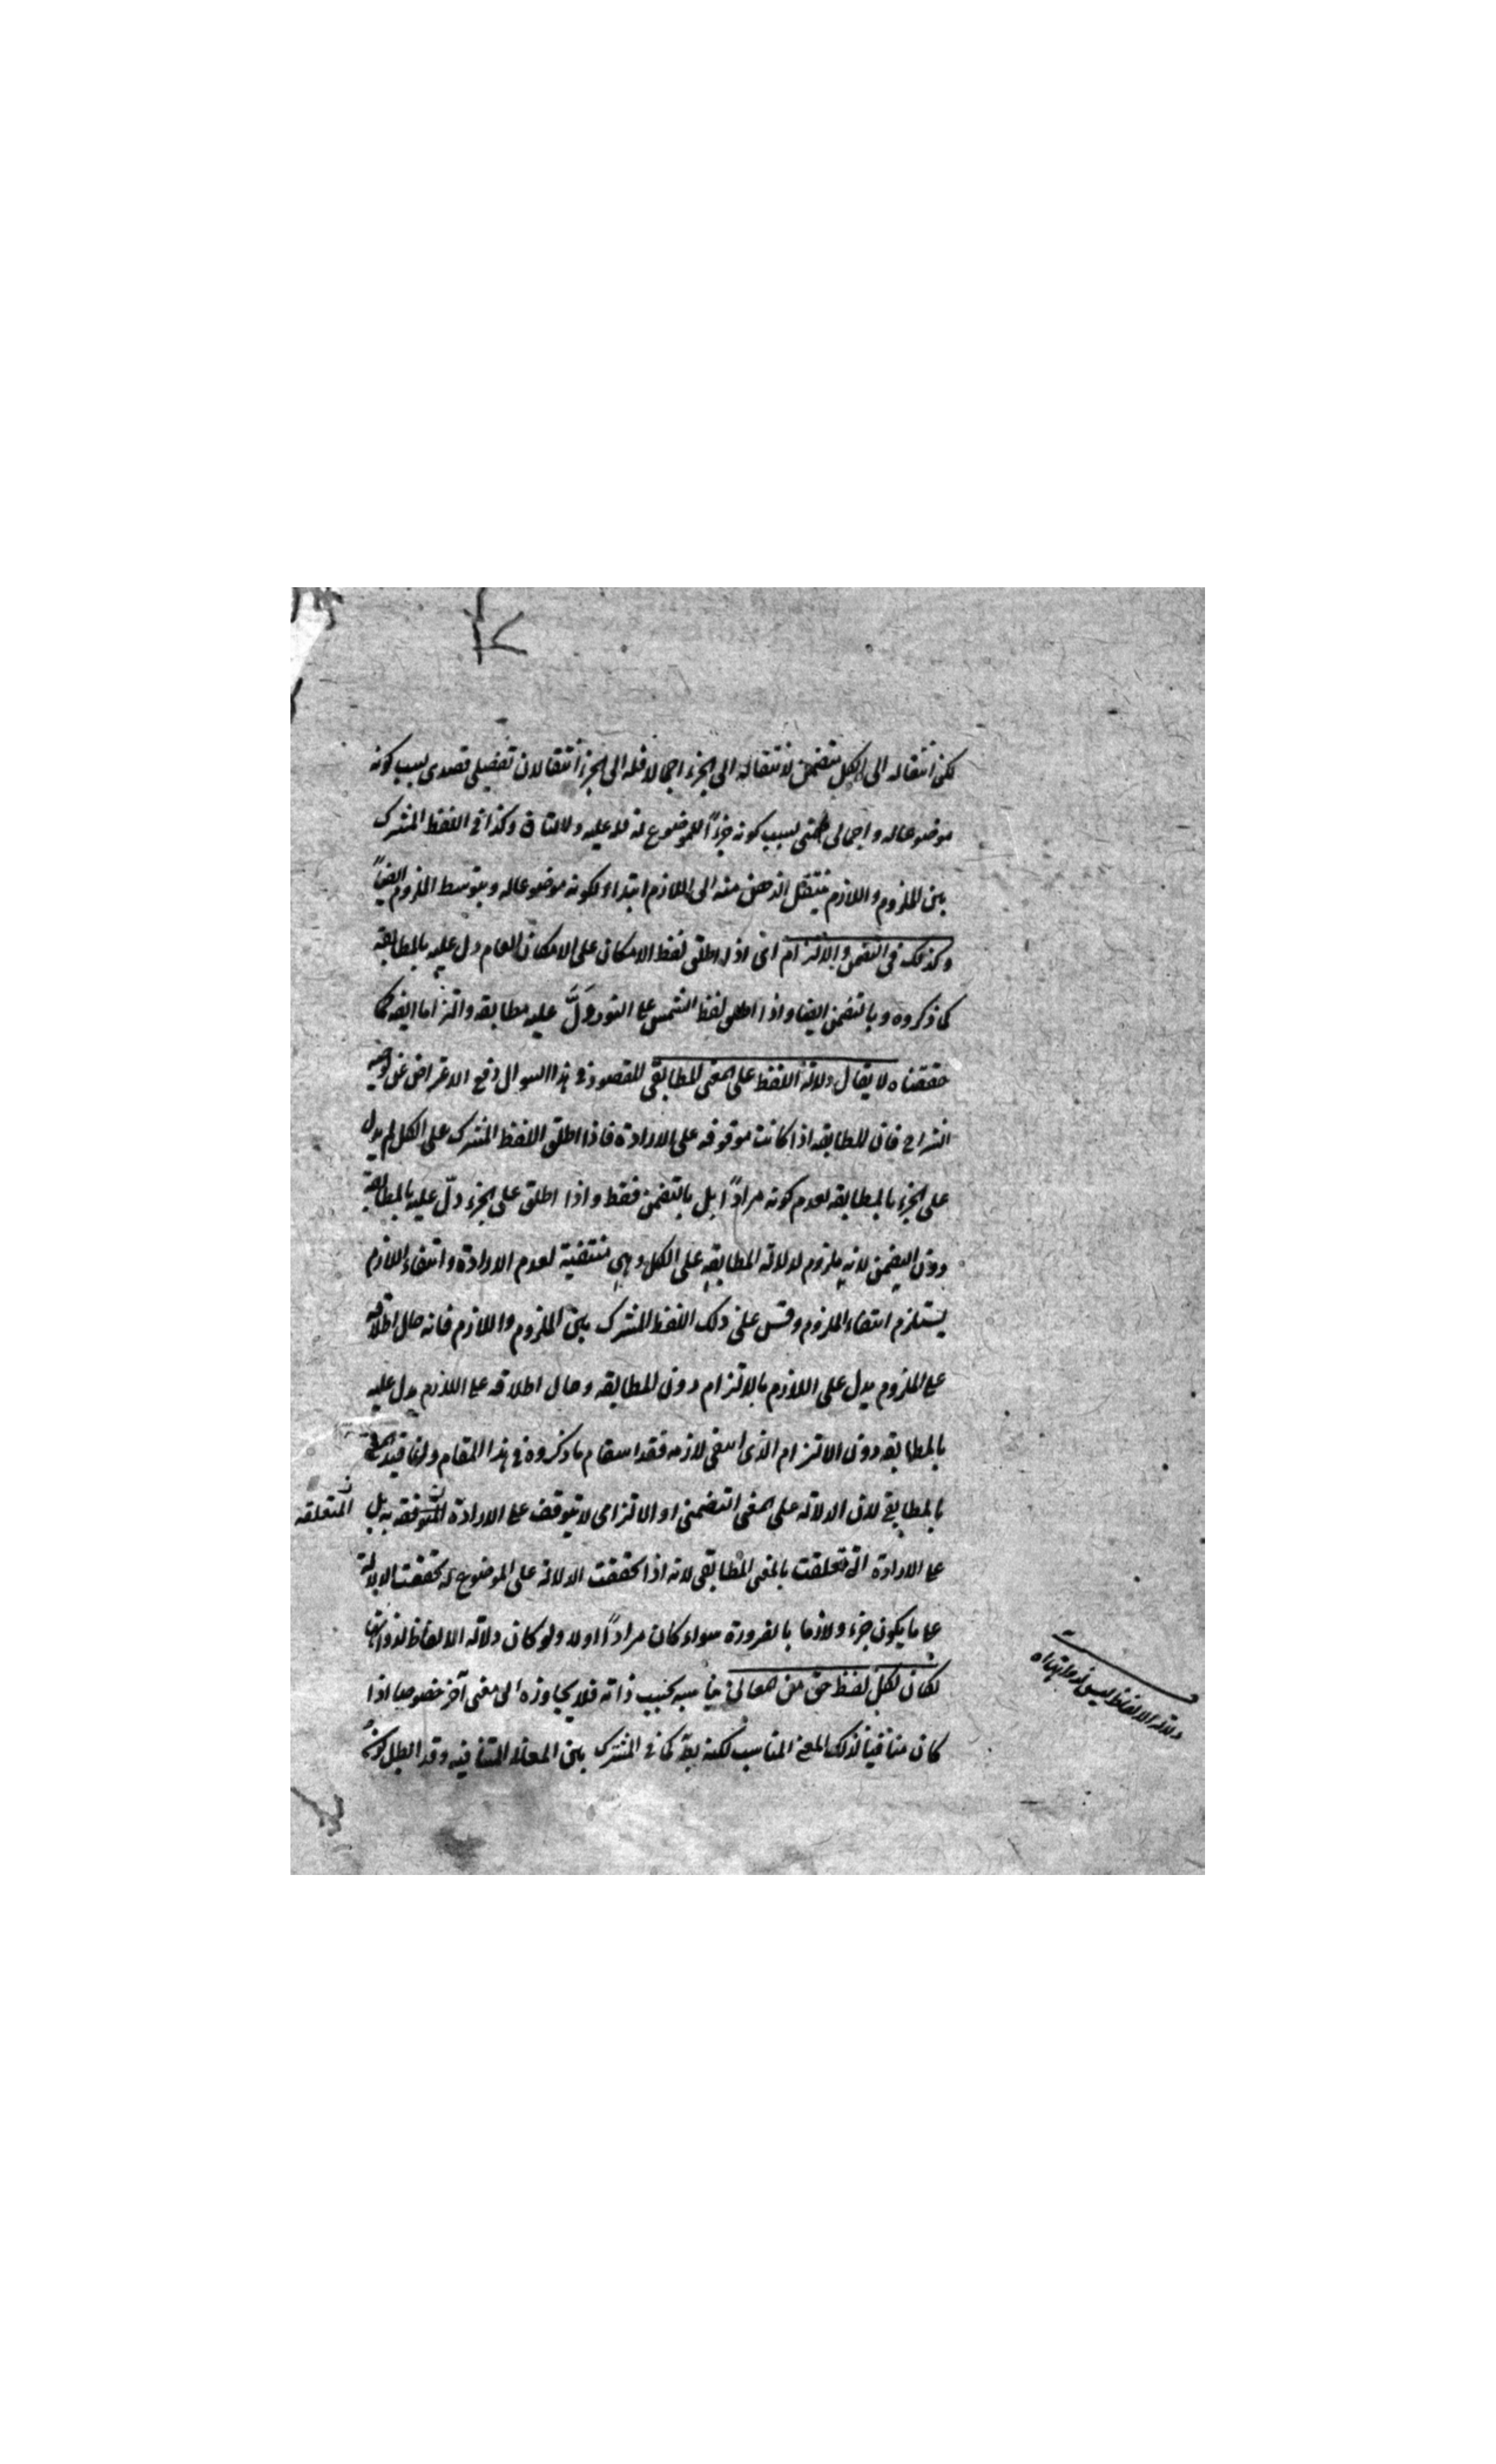 لكن انتقاله الى الكل يتضمن لانتقاله الى الجزء اجمالا فله الى الجزء انتقالان تفصيلى قصدى بسبب كونه
موضوعاله و اجمالى ضمنى بسبب كونه جزءاً للموضوع له فله عليه دلالتان وكذا فى اللفظ المشترك
بين الملزوم و اللازم ينتقل الذهن منه الى اللازم ابتداء لكونه موضوعاله و بتوسط الملزوم ايضاً
وكذلك فى التضمن و الالتزام اى اذا اطلق لفظ الامكان على الامكان العام دل عليه بالمطابقة
كما ذكروه و بالتضمن ايضا و اذا اطلق لفظ الشمس على النور دَلَّ عليه مطابقه و التزاما ايضا كما
حققناه لا يقال دلالة اللفظ على المعنى المطابقى المقصود فى هذا السوال دفع الاعتراض عن توجيه
الشراح فان المطابقه اذا كانت موقوفه على الارادة فاذا اطلق اللفظ المشترك على الكل لم يدل
على الجزء بالمطابقه لعدم كونه مراداً بل بالتضمن فقط و اذا اطلق على الجزء دلّ عليه بالمطابقة
دون التضمن لانه ملزوم لدلالة المطابقه على الكل و هى منتفية لعدم الارادة و انتفاء اللازم
يستلزم انتفاء الملزوم و قس على ذلك اللفظ المشترك بين الملزوم و اللازم فانه حال اطلاقه
على الملزوم يدل على اللازم بالالتزام دون المطابقه و حال اطلاقه على اللازم يدل عليه
بالمطابقه دون الالتزام الذى انتفى لازمه فقد استقام ما ذكروه فى هذا المقام و انما قيد المعنى
بالمطابقى لان الدلالة على المعنى التضمنى او الالتزامى لا يتوقف على الارادة المتوقفه به بل
المتعلقه
على الارادة التى تعلقت بالمعنى المطابقى لانه اذا تحققت الدلالة على الموضوع له تحققت الدلالة
على ما يكون جزء و لازما بالضرورة سواء كان مراداً اولا و لو كان دلالة الالفاظ لذواتها
لكان لكل لفظ حق من المعانى يناسبه بحسب ذاته فلا يجاوزه الى معنى آخر خصوصا اذا
دلالة الالفاظ ليس لذواتها اه
كان منافيا لذلك المعنى المناسب لكنه كما فى المشترك بين المعانى المتنافيه و قد ابطل كون